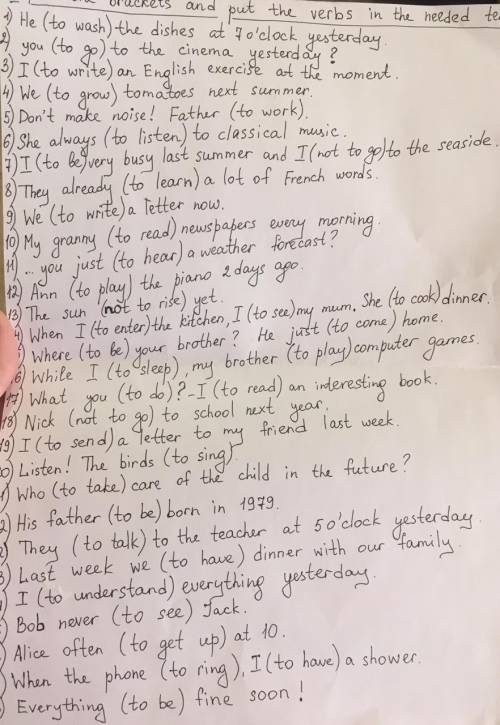 brackets and put the verbs in the needed
1) He (to wash) the dishes at 7 o'clock yesterday.
2) you (to go) to the cinema yesterday?
3) I (to write) an English exercise at the moment.
4) We (to grow) tomatoes next summer.
5) Don't make noise! Father (to work).
6) She always (to listen) to classical music.
7) I (to be) very busy last summer and I (not to go) to the seaside.
8) They already (to learn) a lot of French words.
9) We (to write) a letter now.
10) My granny (to read) newspapers every morning.
11) ... you just (to hear) a weather forecast?
12) Ann (to play) the piano 2 days ago.
13) The sun (not to rise) yet.
4) When I (to enter) the kitchen, I (to see) my mum. She (to cook) dinner.
5) Where (to be) your brother? He just (to come) home.
6) While I (to sleep), my brother (to play) computer games.
17) What you (to do)? - I (to read) an interesting book.
18) Nick (not to go) to school next year.
19) I (to send) a letter to my friend last week.
0) Listen! The birds (to sing).
1) Who (to take) care of the child in the future?
2) His father (to be) born in 1979.
2) They (to talk) to the teacher at 5 o'clock yesterday.
3) Last week we (to have) dinner with our family.
I (to understand) everything yesterday.
Bob never (to see) Jack.
Alice often (to get up) at 10.
When the phone (to ring), I (to have) a shower.
Everything (to be) fine soon!